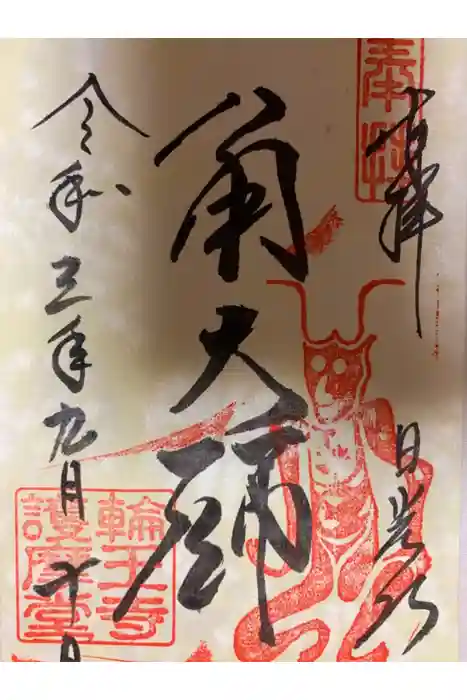 奉拝
日光山
角大師
令和三年九月十日
輪王寺
護摩堂